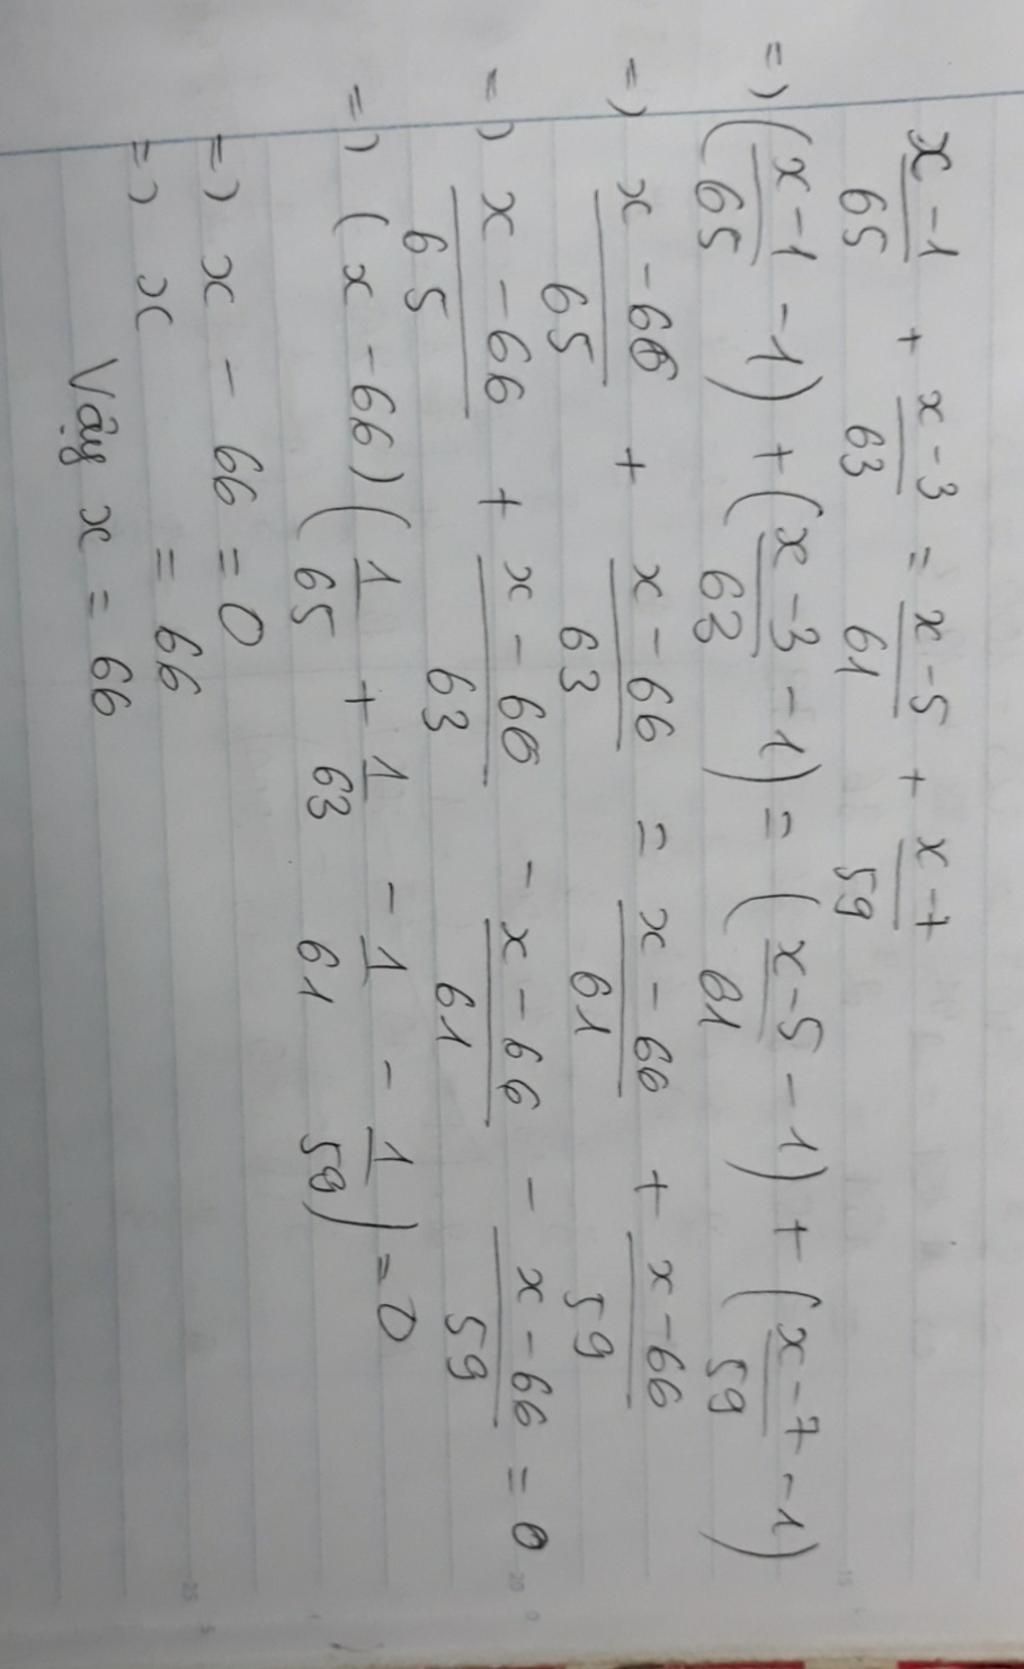 x-1/65 + x-3/63 = x-5/61 + x-7/59
=) (x-1/65 - 1) + (x-3/63 - 1) = (x-5/61 - 1) + (x-7/59 - 1)
=) x-66/65 + x-66/63 = x-66/61 + x-66/59
=) x-66/65 + x-66/63 - x-66/61 - x-66/59 = 0
=) (x-66)(1/65 + 1/63 - 1/61 - 1/59) = 0
=) x - 66 = 0
=) x = 66
Vậy x = 66